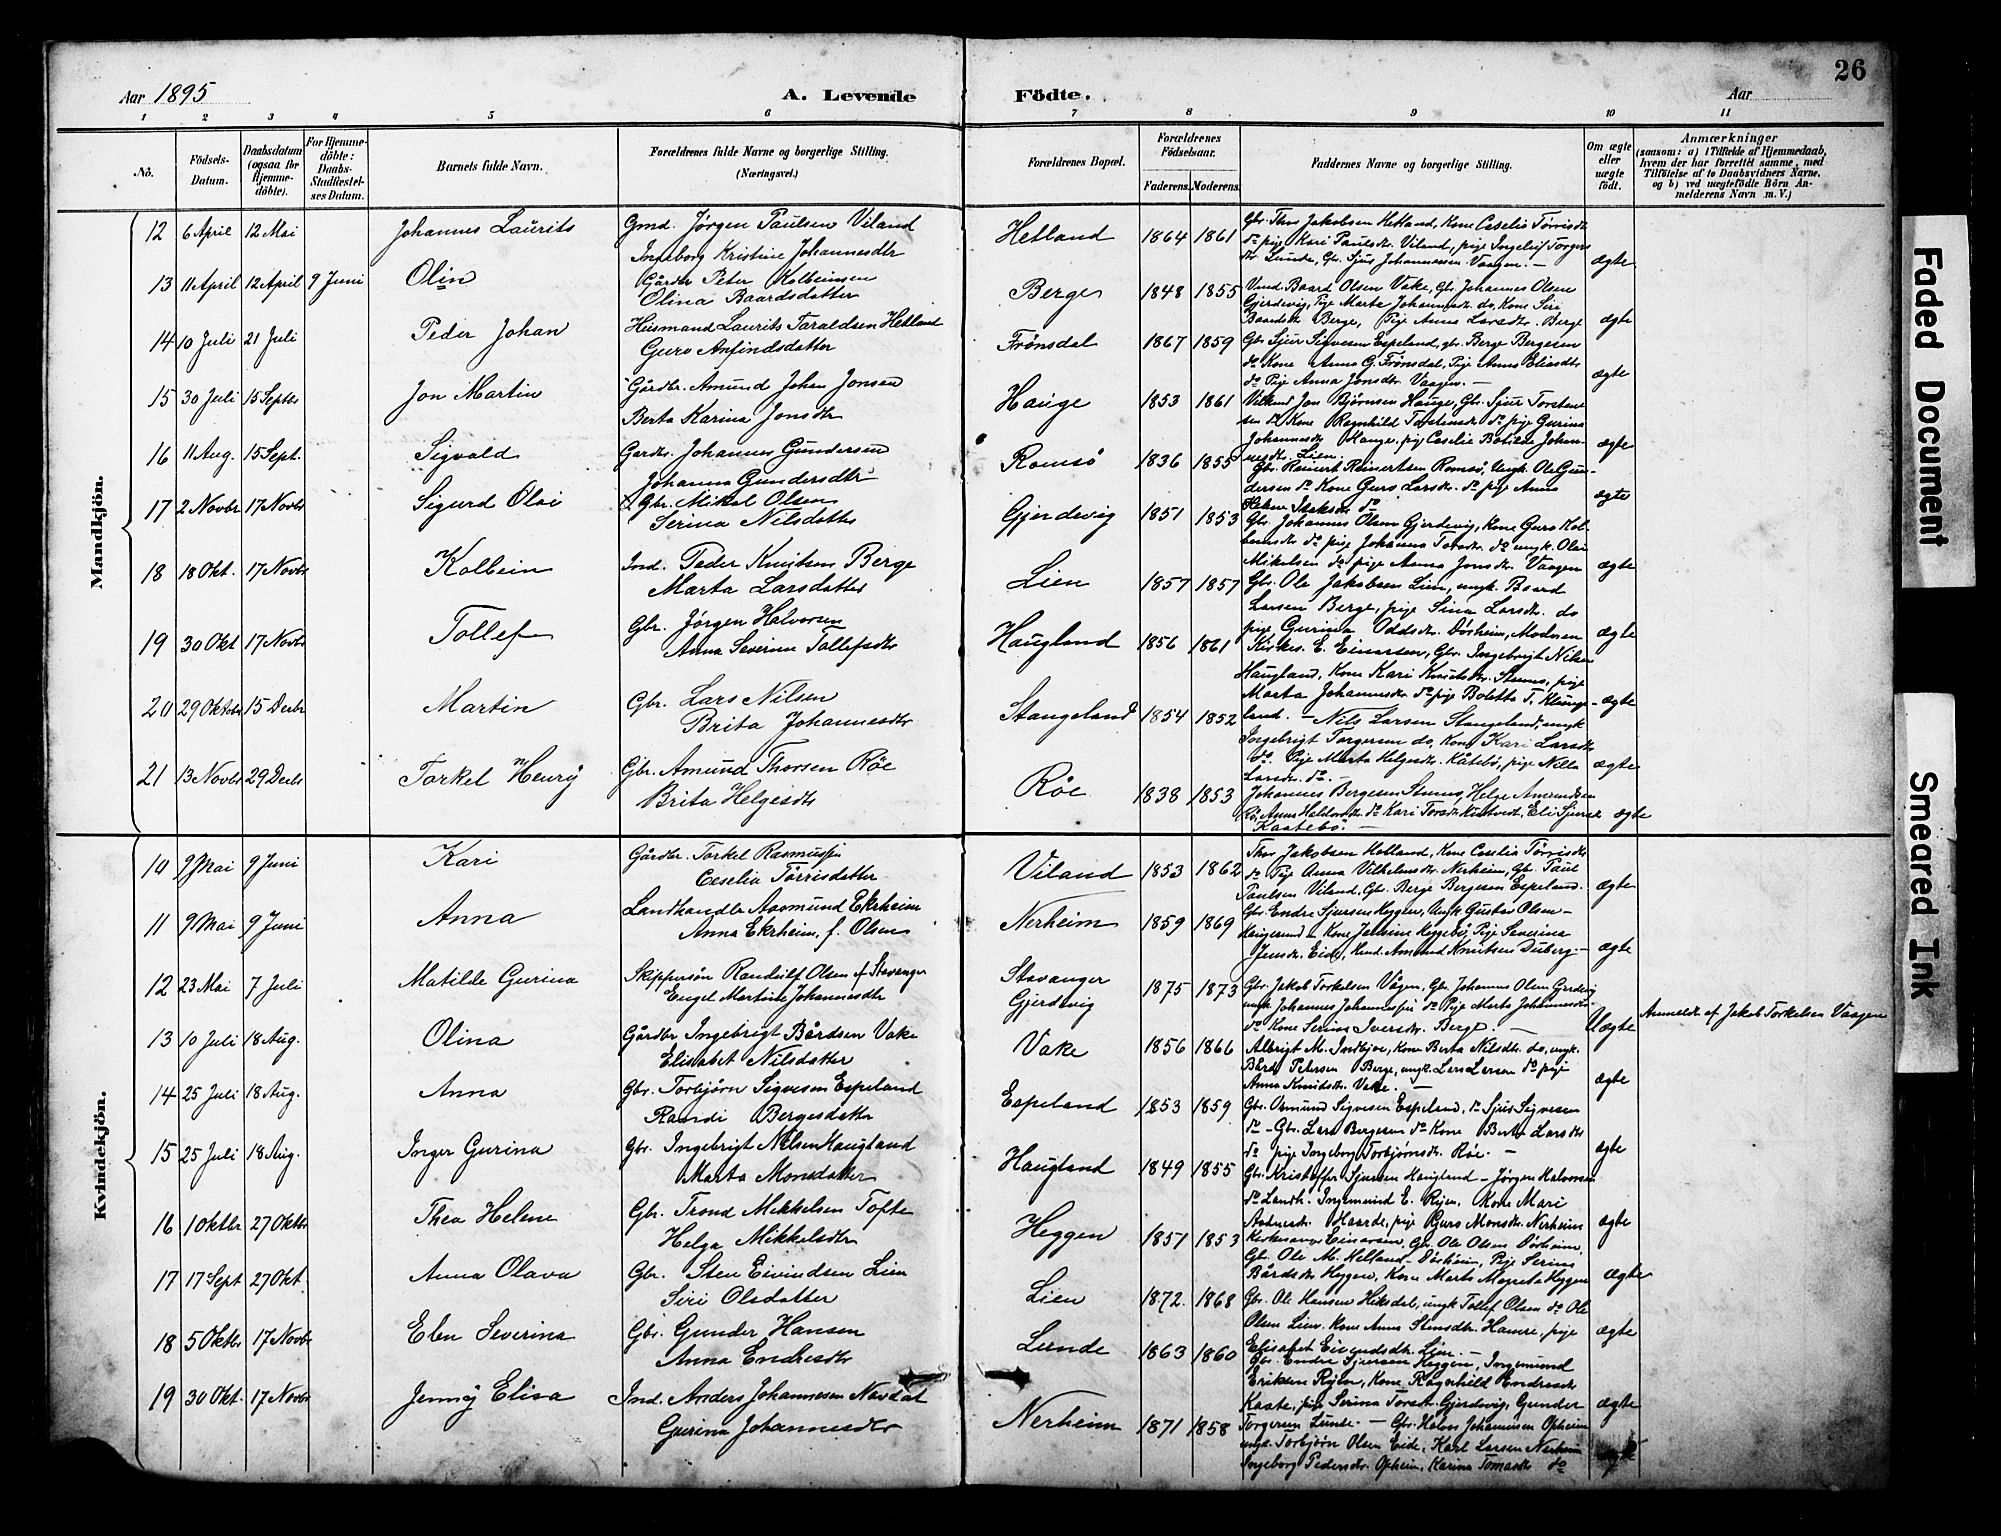 26
Aar 1895
A. Levende
Födte.
Aar
1 2 3 4 5 6 7 8 9 10 11
No.
Födsels-Datum.
Daabsdatum (ogsaa for Hjemme-döbte).
For Hjemme-döbte: Daabs-Stadfæstelses Datum.
Barnets fulde Navn.
Forældrenes fulde Navne og borgerlige Stilling.
(Næringsvei.)
Forældrenes Bopæl.
Forældrenes Födselsaar.
Faderens. Moderens.
Faddernes Navne og borgerlige Stilling.
Om ægte eller uægte födt.
Anmærkninger
(saasom: a) i Tilfælde af Hjemmedaab,
hvem der har forrettet samme, med
Tilföielse af to Daabsvidners Navne,
og b) ved uægtefödte Börn An-
melderens Navn m. V.)
Mandkjön.
12 6 April 12 Mai Johannes Laurits Gmd. Jørgen Paulsen Viland
Ingeborg Kristine Johannesdtr
Hetland 1864 1861 Gbr. Thor Jakobsen Hetland, Kone Cecelia Tørrisdtr
do pige Kari Paulsdtr. Viland, pige Ingeleif Torgers
dtr. Lunde, Gbr. Sjur Johannessen Vaagen. — ægte
13 11 April 12 April 9 Juni Olin Gårdbr Peter Kolbeinsen
Olina Baardsdatter
Berge 1848 1855 Baard Olsen Vake, Gbr. Johannes Olsen
Gjerdevig, Pige Marta Johannesdtr. do, Kone Siri
Baardsdtr Berge, Pige Anna Larsdtr. Berge ægte
14 10 Juli 21 Juli Peder Johan Husmand Laurits Taraldsen Hetland
Guro Anfindsdatter
Frønsdal 1867 1859 Gbr Sjur Sigvesen Espeland, gbr. Berge Bergesen
do Kone Anna G. Frønsdal, Pige Anna Eliasdtr
do Pige Anna Jonsdtr Vaagen. — ægte
15 30 Juli 15 Septbr Jon Martin Gårdbr. Amund Johan Jonsen
Berta Karina Jonsdtr
Hauge 1853 1861 Jon Bjørnsen Hauge, Gbr. Sjur Torsten
sen do Kone Ragnhild Torstensdtr do pige Gurina
Johannesdtr Hauge, pige Cecelia Botilde Johan-
nesdtr. Lien. ægte
16 11 Aug. 15 Sept. Sigvald Gardbr. Johannes Gundersen
Johanna Gundersdtr
Romsø 1836 1855 Gbr. Reinert Reinertsen Romsø, Ungk. Ole Gun-
dersen do Kone Guro Larsdtr. do pige Anna
Helene Isaksdtr do ægte
17 2 Novbr 17 Novbr Sigurd Olai Gbr. Mikal Olsen
Serina Nilsdatter
Gjerdevig 1851 1853 Gbr. Johannes Olsen Gjerdevig, Kone Guro Kol-
beinsdtr do pige Johanna Torsdtr. do ungk. Olai
Mikalsen do pige Anna Jonsdtr. Vaagen ægte
18 18 Okt. 17 Novbr Kolbein Ind. Peder Knutsen Berge
Marta Larsdatter
Lien 1857 1857 Gbr. Ole Jakobsen Lien, ungk. Baard
Larsen Berge, pige Sina Larsdtr. do
pige Gurina Oddsdtr. Dørheim, Moderen ægte
19 30 Okt 17 Novbr Tollef Gbr. Jørgen Halvorsen
Anna Severine Tollefsdtr
Haugland 1856 1861 Kirkes. E. Einarsen, Gbr. Ingebrigt Nilsen
Haugland, Kone Kari Knutsdtr. Stumo, pige
Marta Johannesdtr do pige Boletta T. Klunge-
land. — ægte
20 29 Oktober 15 Decbr Martin Gbr. Lars Nilsen
Brita Johannesdtr
Stangeland 1854 1852 Nils Larsen Stangeland, ungk
Ingebrigt Torgersen do, Kone Kari Larsdtr
do. Pige Marta Helgesdtr. Kåtebø, pige Nilla
Larsdtr. do. — ægte
21 13 Novbr 29 Decbr Torkel Henry Gbr. Amund Thorsen Røe
Brita Helgesdtr
Røe 1838 1853 Johannes Bergesen Stumo, Helge Amundsen
Rø, Anna Haldorsdtr. do Kari Torsdtr, Eli Sjursdtr
Kaatebø. — ægte
Kvindekjön.
10 9 Mai 9 Juni Kari Gårdbr. Torkel Rasmussen
Cecelia Tørrisdatter
Viland 1853 1862 Thor Jakobsen Hetland, Kone Cecelia Tørrisdtr
do Pige Anna Vilhelmsdtr. Nerheim, Gbr. Paul
Paulsen Viland, Gbr. Berge Bergesen Espeland. ægte
11 9 Mai 9 Juni Anna Landhandler Aasmund Ekrheim
Anna Ekrheim, f. Olsen
Nerheim 1859 1869 Gbr. Endre Sjursen Heggen, Ungk Gustav Olsen —
Haugesund — Kone Jakobine Heggebø, Pige Severina
Jensdtr. Eide, Amund Knutsen Duberg — ægte
12 23 Mai 7 Juli Matilde Gurina Skippersøn Randulf Olsen af Stavanger
Engel Martine Johannesdtr
Stavanger
Gjerdevig 1875 1873 Gbr. Jakob Torkelsen Vågen, Gbr. Johannes Olsen Gjerdevig
ungk Johannes Johannessen do Pige Marta Johannesdtr.
do Kone Serina Iversdtr. Berge. — Uægte Anmeldt af Jakob Torkelsen Vaagen
13 10 Juli 18 Aug. Olina Gårdbr Ingebrigt Bårdsen Vake
Elisabet Nilsdatter
Vake 1856 1866 Albrigt M. Indbjoe, Kone Berta Nilsdtr. do, ungk.
Bård Petersen Berge, ungk. Lars Larsen do pige
Anna Knudsdtr. Vake. — ægte
14 25 Juli 18 Aug. Anna Gbr. Torbjörn Sigvesen Espeland
Randi Bergesdatter
Espeland 1853 1859 Gbr. Osmund Sigvesen Espeland, do Sjur Sigvesen
do — Gbr. Lars Bergesen do Kone Berta Larsdtr
do pige Ingeborg Torbjørnsdtr. Røe. — ægte
15 25 Juli 18 Aug. Inger Gurina Gbr. Ingebrigt Nilsen Haugland
Marta Monsdatter
Haugland 1849 1855 Gbr. Kristoffer Sjursen Haugland — Jörgen Halvorsen
do Landh. Ingemund E. Rijen, Kone Mari
Aadnesdtr. Haarde, pige Guro Monsdtr. Nerheim ægte
16 1 Oktbr 27 Oktbr Thea Helene Gbr. Trond Mikkelsen Tofte
Helga Mikkelsdtr
Heggen 1851 1853 Kirkesanger Einarsen, Gbr. Ole Olsen Dørheim,
Gbr. Ole M. Helland — Dørheim, Pige Serina
Bårdsdtr Heggen, Kone Marta Magreta Heggen ægte
17 17 Sept 27 Okt. Anna Olava Gbr. Sten Eivindsen Lien
Siri Olsdatter
Lien 1872. 1868 Gbr. Ole Hansen Hiksdal, ungk Tollef Olsen do Ole
Olsen Lien. Kone Anna Stensdtr. Hamre, pige
Elisabet Eivendsdtr. Lien. — ægte
18 5 Oktbr 17 Novbr Elen Severina Gbr. Gunder Hansen
Anna Endresdtr
Lunde 1863 1860 Gbr. Endre Sjursen Heggen, Ingemund
Eriksen Rijen, Kone Ragnhild Endresdtr
Kaate, pige Serina Torsdtr. Gjerdevig, Gunder
Torgersen Lunde. — ægte
19 30 Okt. 17 Novbr Jenny Elisa Ind. Anders Johannesen Navdal
Gurina Johannesdtr
Nerheim 1871 1858 Gbr. Halvor Johannesen Opheim
ungk. Torbjørn Olsen Eide, Karl Larsen Nerheim
Ingeborg Pedersdtr. Opheim, Karina Tomasdtr do ægte
Faded Document
Smeared Ink